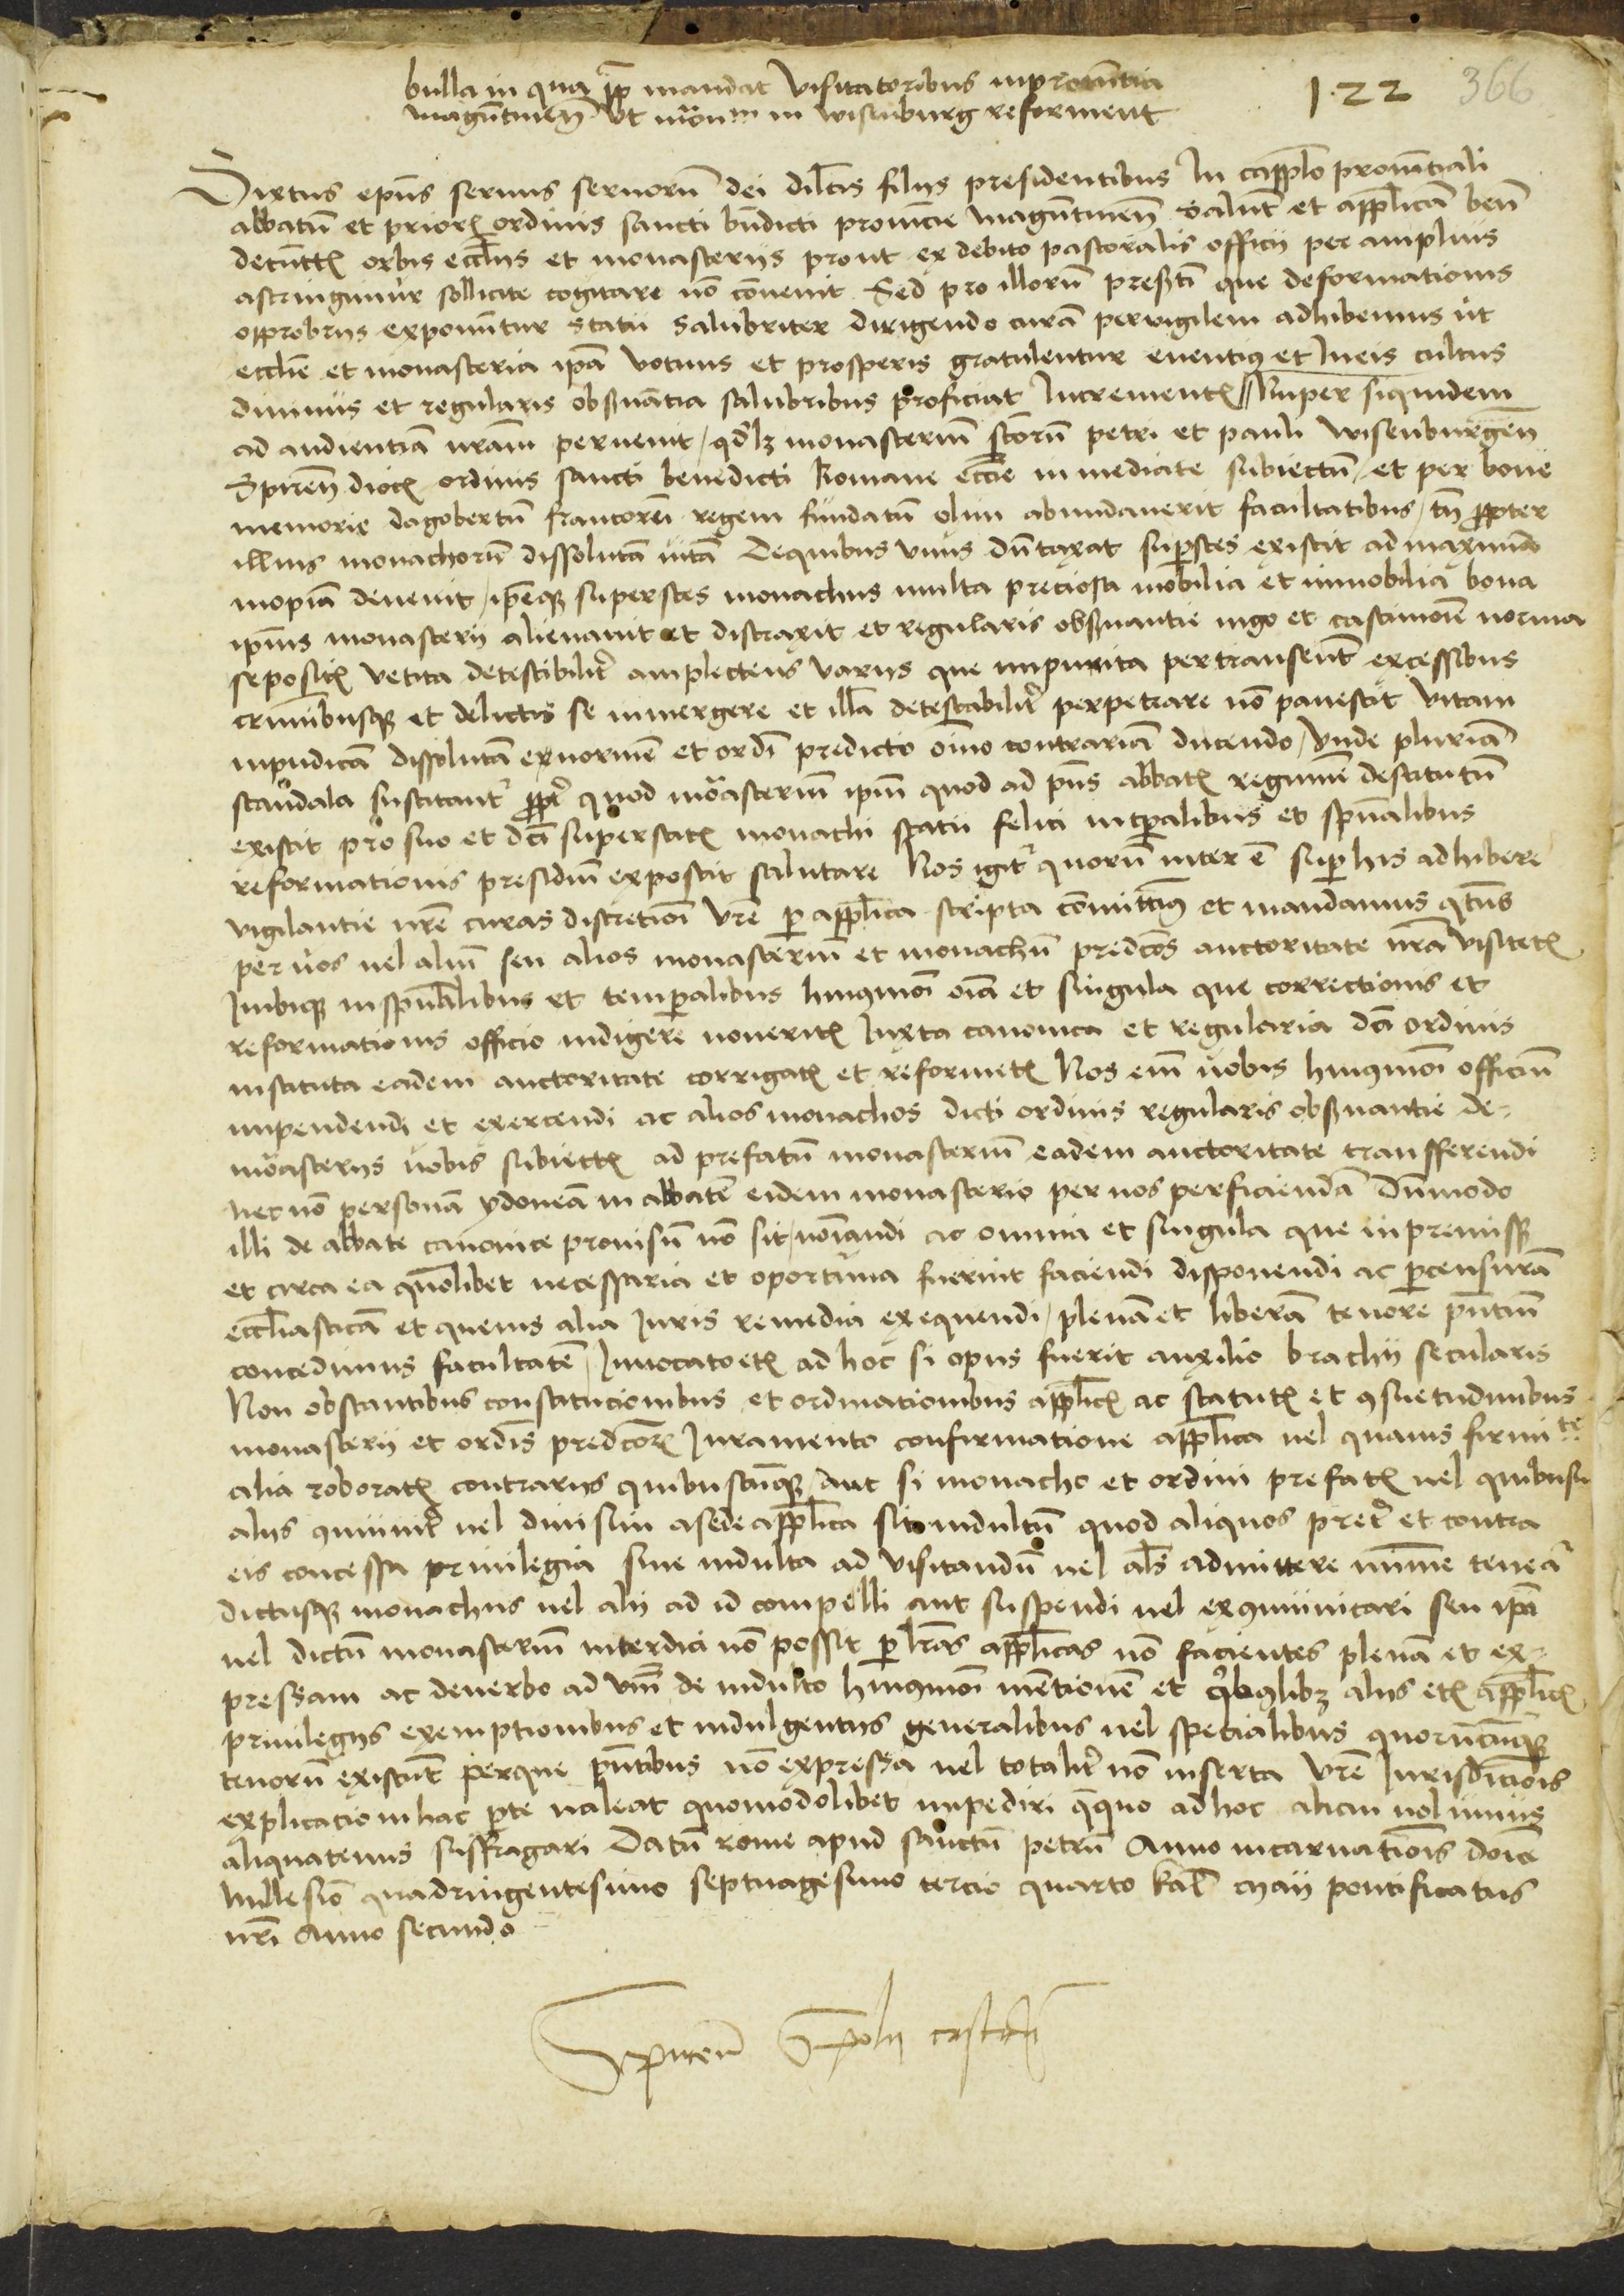 bulla in qua pp mandat visitatoribus in provintia
maguntinen ut monm in wissenburg reforment
122 366
Sixtus epus servus servorum dei dilectis filiis presidentibus In capplo provintiali
abbatum et priorum ordinis sancti bndicti provincie maguntinen Salut et applicam ben
ecclesiis et monasteriis prout ex debito pastoralis officii per amplius
astringimur sollicite cogitare non convenit Sed pro illorum presertim que deformationis
opprobriis exponuntur statu salubriter dirigendo curam pervigilem adhibemus ut
ecclie et monasteria ipa votivis et prosperis gratulentur eventibus et In eis cultus
divinus et regularis observantia salubribus proficiat Incrementis Nuper siquidem
ad audientiam nram pervenit / qd licet monasterium sctorum petri et pauli wisenburgen
Spiren dioc ordinis sancti benedicti Romane eccie inmediate subiectum / et per bone
memorie dagobertum francorum regem fundatum olim abundaverit facultatibus / tn propter
illius monachorum dissolutam vitam De quibus unus dumtaxat superstes existit ad maximam
inopiam devenit / ipeque superstes monachus multa preciosa mobilia et immobilia bona
ipius monasterii alienavit et distraxit et regularis observantie iugo et castimonie norma
sepositis vetita detestibiliter amplectens variis que impunita pertransent excessibus
criminibusque et delictis se inmergere et illa detestabiliter perpetrare non pavescit vitam
inpudicam dissolutam exnormem et ordini predicto omnino contrariam ducendo / Unde plurima
scandala suscitantur propter quod monasterium ipm quod ad pns abbatis regimine destitutum
existit pro suo et dci superstitis monachi statu felici in temporalibus et spiritualibus
reformationis presidium exposcit salutare Nos igitur quorum interest super his adhibere
vigilantie nre curas discretioni vre per applica scripta committimus et mandamus qtns
per vos vel alium seu alios monasterium et monachum predictos auctoritate nra visitetis
Inibique in spiritualibus et temporalibus huiusmodi oia et singula que correctionis et
reformationis officio indigere noveritis Iuxta canonica et regularia dci ordinis
instituta eadem auctoritate corrigatis et reformetis Nos enim vobis huiusmodi officium
impendendi et exercendi ac alios monachos dicti ordinis regularis observantie de
monasteriis vobis subiectis ad prefatum monasterium eadem auctoritate transfferendi
nec non personam ydoneam in abbatem eidem monasterio per nos perficiendam Dummodo
illi de abbate canonice provisum non sit / noiandi ac omnia et singula que in premissis
et circa ea quomolibet necessaria et oportuna fuerint faciendi disponendi ac per censuram
ecclesiasticam et quevis alia Iuris remedia exequendi / plenam et liberam tenore pntium
concedimus facultatem / Invocato etiam ad hoc si opus fuerit auxilio brachii secularis
Non obstantibus constitucionibus et ordinationibus applicis ac statutis et consuetudinibus
monasterii et ordinis predictorum Iuramento confirmatione applica vel quavis firmitate
alia roboratis contrariis quibuscunque / Aut si monacho et ordini prefatis vel quibusvis
aliis communiter vel divisim a sede applica sit indultum quod aliquos preter et contra
eis concessa privilegia sive indulta ad visitandum vel als admittere minime teneantur
dictusque monachus vel alii ad id compelli aut suspendi vel excommunicari seu ipa
vel dictum monasterium interdici non possit per lras applicas non facientes plenam et ex-
pressam ac de verbo ad vbm de indulto huiusmodi mentionem et quibuslibet aliis etiam applicis
privilegiis exemptionibus et indulgentiis generalibus vel specialibus quorumcunque
tenorum existunt per que pntibus non expressa vel totaliter non inserta vre Iurisdictionis
explicatio in hac parte valeat quomodolibet impediri que quo ad hoc alicui nolumus
aliquatenus suffragari Datum Rome apud sanctum petrum Anno incarnationis doice
Millesimo quadringentesimo septuagesimo tercio quarto kal maii pontificatus
nri Anno secundo